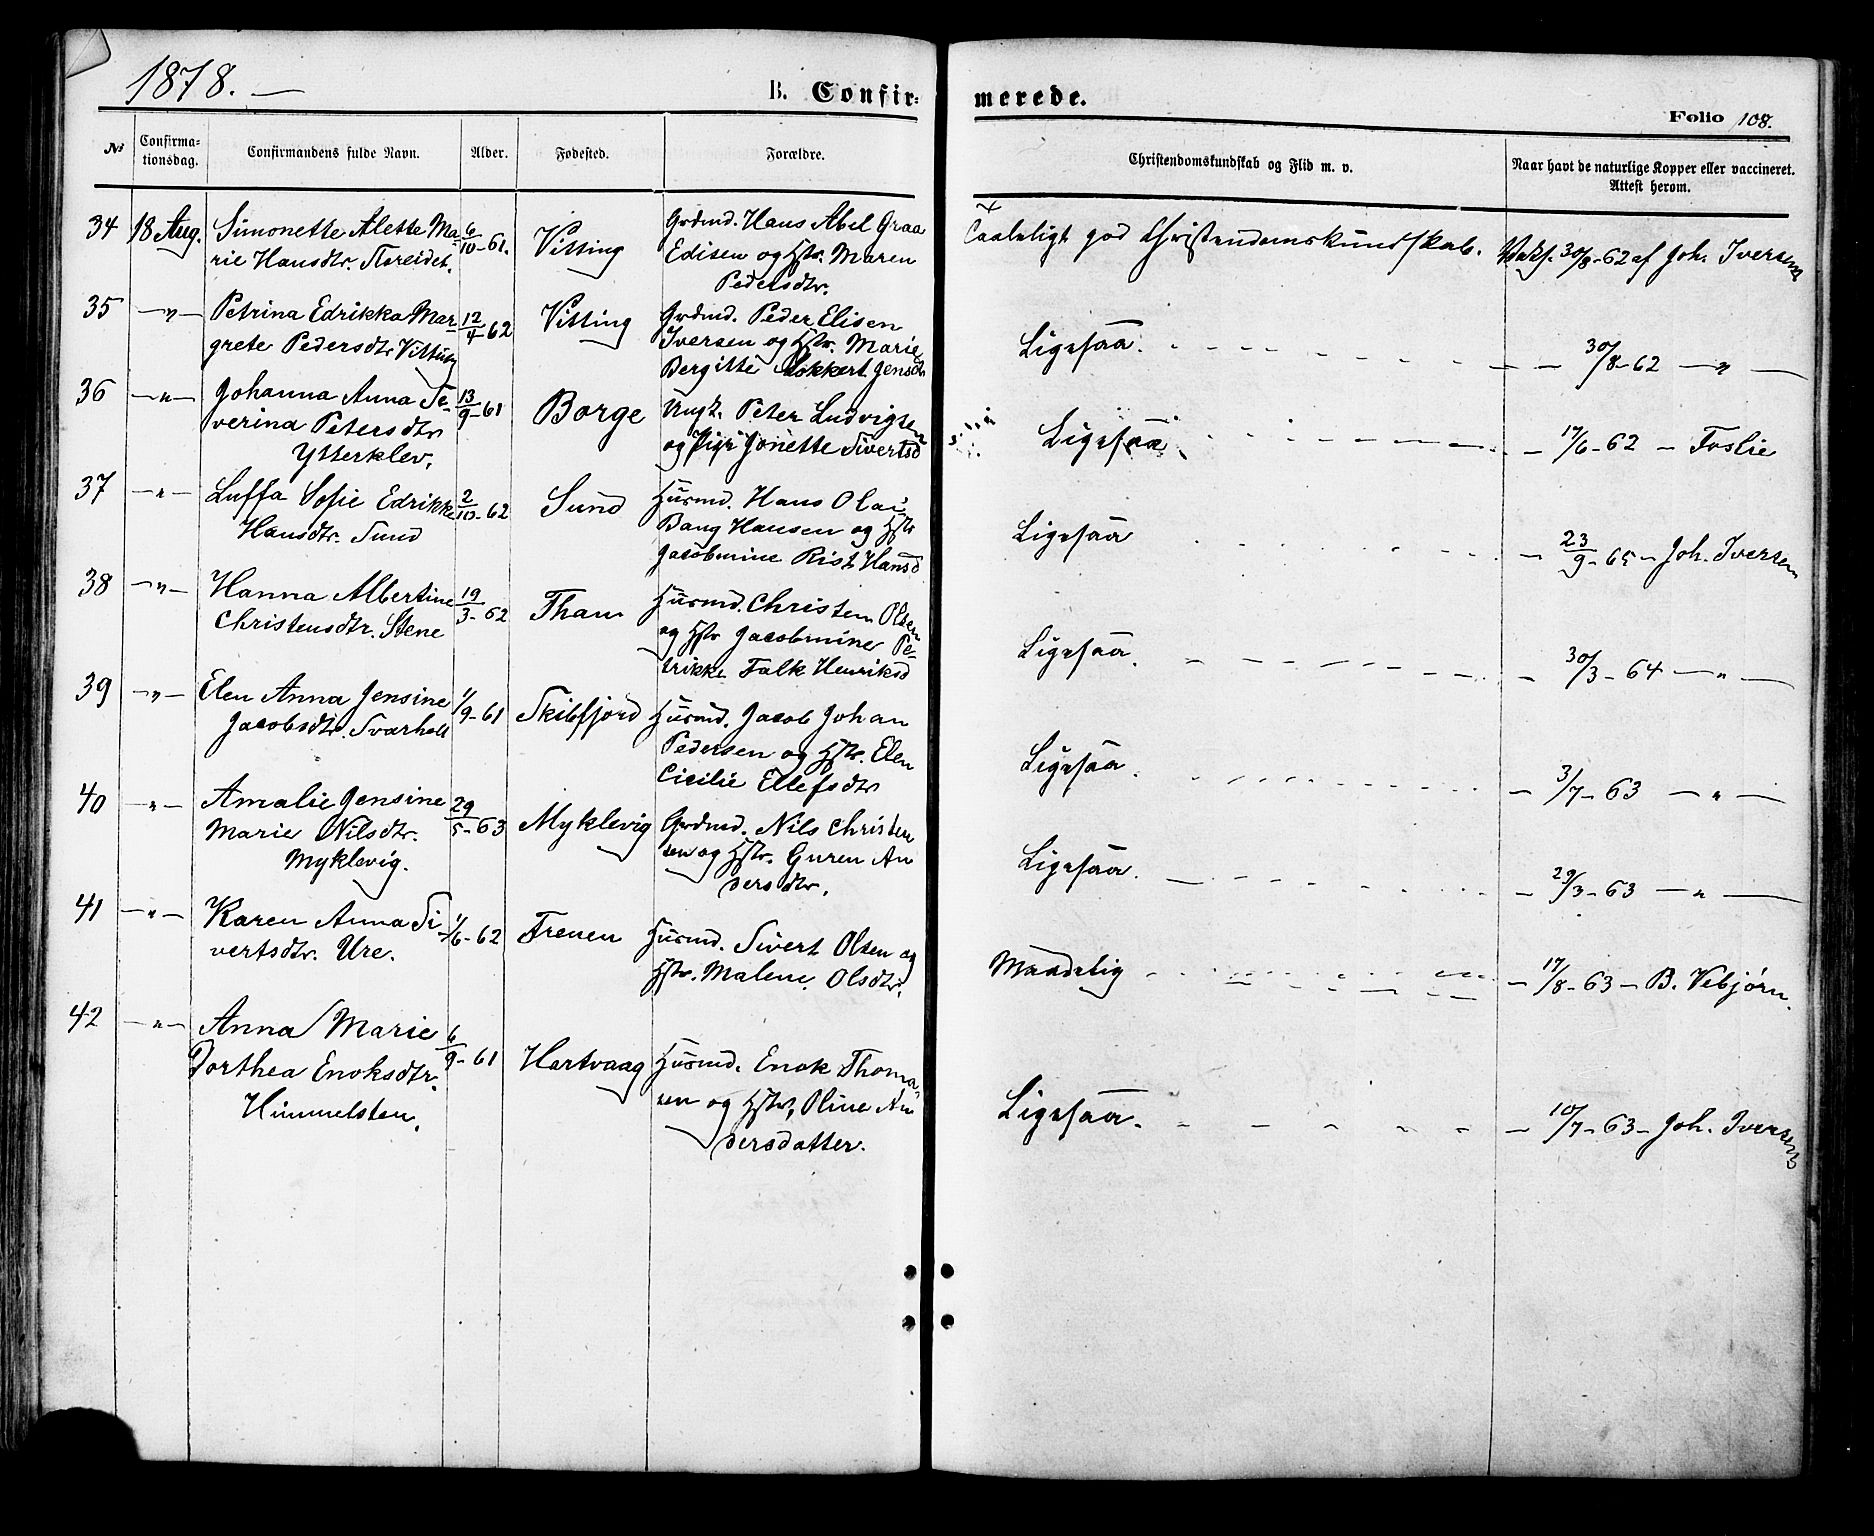 1878. —
B. Confir-
merede.
Folio 108.
No
Confirma-
tionsdag.
Confirmandens fulde Navn.
Alder.
Fødested.
Forældre.
Christendomskundskab og Flid m. v.
Naar havt de naturlige Kopper eller vaccineret.
Attest herom.
34 18 Aug. Simonette Alette Ma- 6/10-61. Vitting Grdmd. Hans Abel Graa
rie Hansdtr. Edisen og Hstr. Maren
Pedersdtr.
Taaleligt god Christendomskundskab. Vaks. 30/8-62 af Joh. Iversen
35 —"— Petrina Edrikka Mar- 12/4 62 Vitting Grdmd. Peder Elisen
grete Pedersdtr Vitting Iversen og Hstr. Marie
Bergitte Lokkert Jensd
Ligesaa. — 30/8-62 —"—
36 —"— Johanna Anna Se- 13/9-61 Borge Ungk. Peter Ludvigsen
verina Petersdtr og Pige Jonette Sivertsd
Ytterklev.
Ligesaa — 17/6-62 — Foslie
37 —"— Luffa Sofie Edrikke 2/10-62 Sund Husmd. Hans Olai
Hansdtr. Sund Bang Hansen og Hstr
Jacobmine Rist Hansd
Ligesaa — 23/9-65 — Joh. Iversen
38 —"— Hanna Albertine 19/3-62 Than Husmd. Christen Olsen
Christensdtr. Stene og Hstr Jacobmine Pe-
trikke Falk Henriksd
Ligesaa. — 30/3-64 —"—
39 —"— Elen Anna Jensine 1/9-61 Skibfjord Husmd. Jacob Johan
Jacobsdtr. Svarholt Pedersen og Hstr. Elen
Cicilie Ellefsdtr
Ligesaa. — 3/7-63 —"—
40 —"— Amalie Jensine 29/5-63 Myklevig Grdmd. Nils Christen
Marie Nilsdtr. sen og Hstr. Guren An
Myklevig. dersdtr.
Ligesaa. — 29/3-63 —"—
41 —"— Karen Anna Si- 1/6-62 Trenen Husmd. Sivert Olsen og
vertsdtr. Ure. Hstr. Malene Olsdtr.
Maadelig — 17/8-63 — B. Vebjørn.
42 —"— Anna Marie 6/9-61 Hartvaag Husmd. Enok Thoma-
Dorthea Enoksdtr. sen og Hstr, Oline An
Himmelsten. dersdatter.
Ligesaa. — 10/7-63 — Joh. Iversen